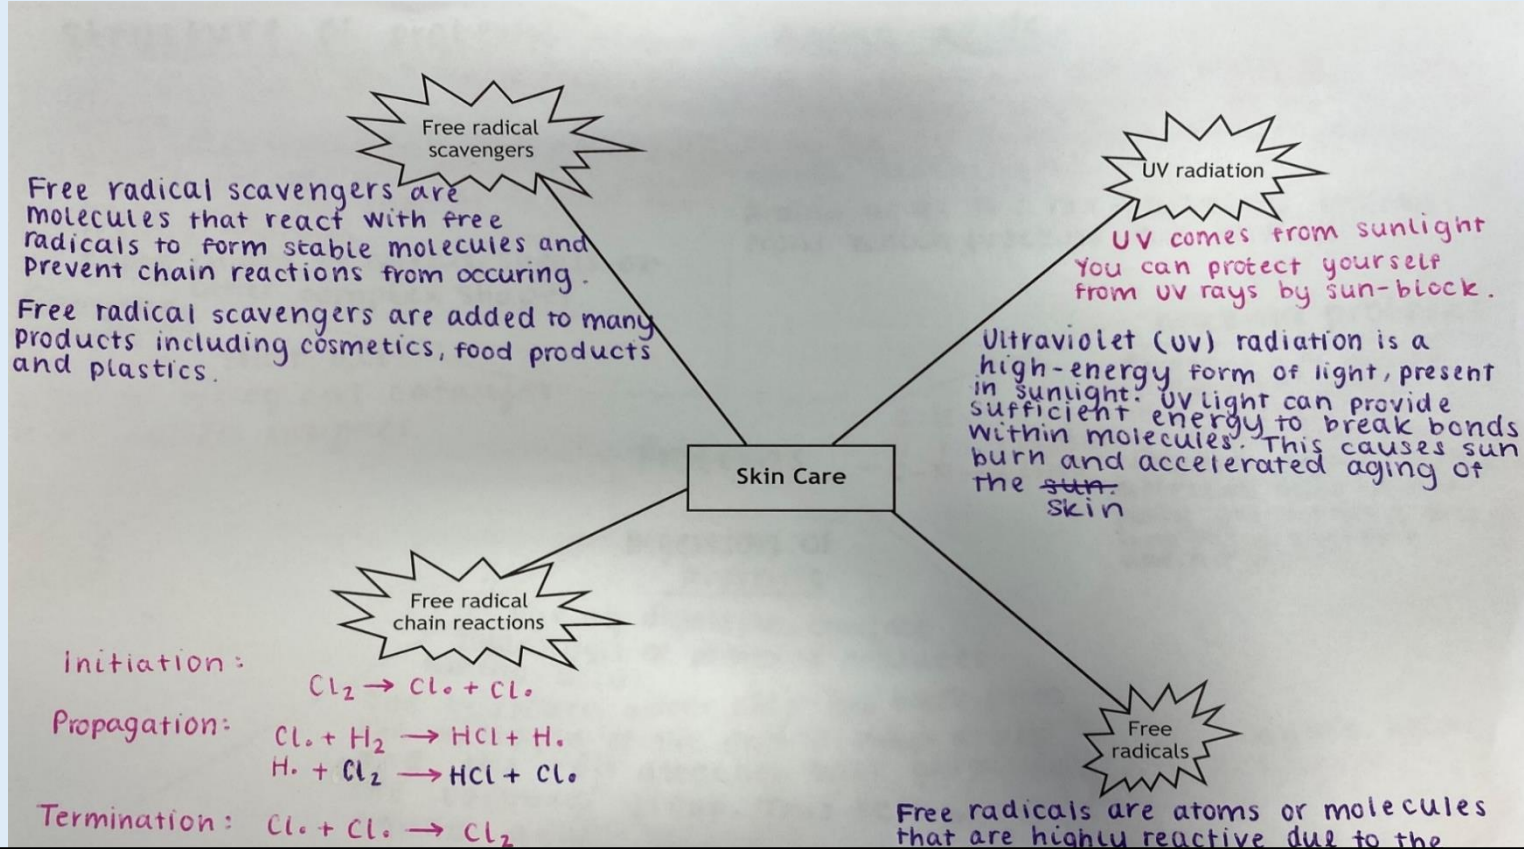 Free radical
scavengers
Free radical scavengers are
molecules that react with free
radicals to form stable molecules and
prevent chain reactions from occuring.
Free radical scavengers are added to many
products including cosmetics, food products
and plastics.
UV radiation
UV comes from sunlight
You can protect yourself
from UV rays by sun-block.
Ultraviolet (UV) radiation is a
high-energy form of light, present
in sunlight. UV light can provide
sufficient energy to break bonds
within molecules. This causes sun
burn and accelerated aging of
the sun.
skin
Skin Care
Free radical
chain reactions
Initiation:
Cl₂ → Cl• + Cl•
Propagation:
Cl• + H₂ → HCl + H•
H• + Cl₂ → HCl + Cl•
Termination: Cl• + Cl• → Cl₂
Free
radicals
Free radicals are atoms or molecules
that are highly reactive due to the